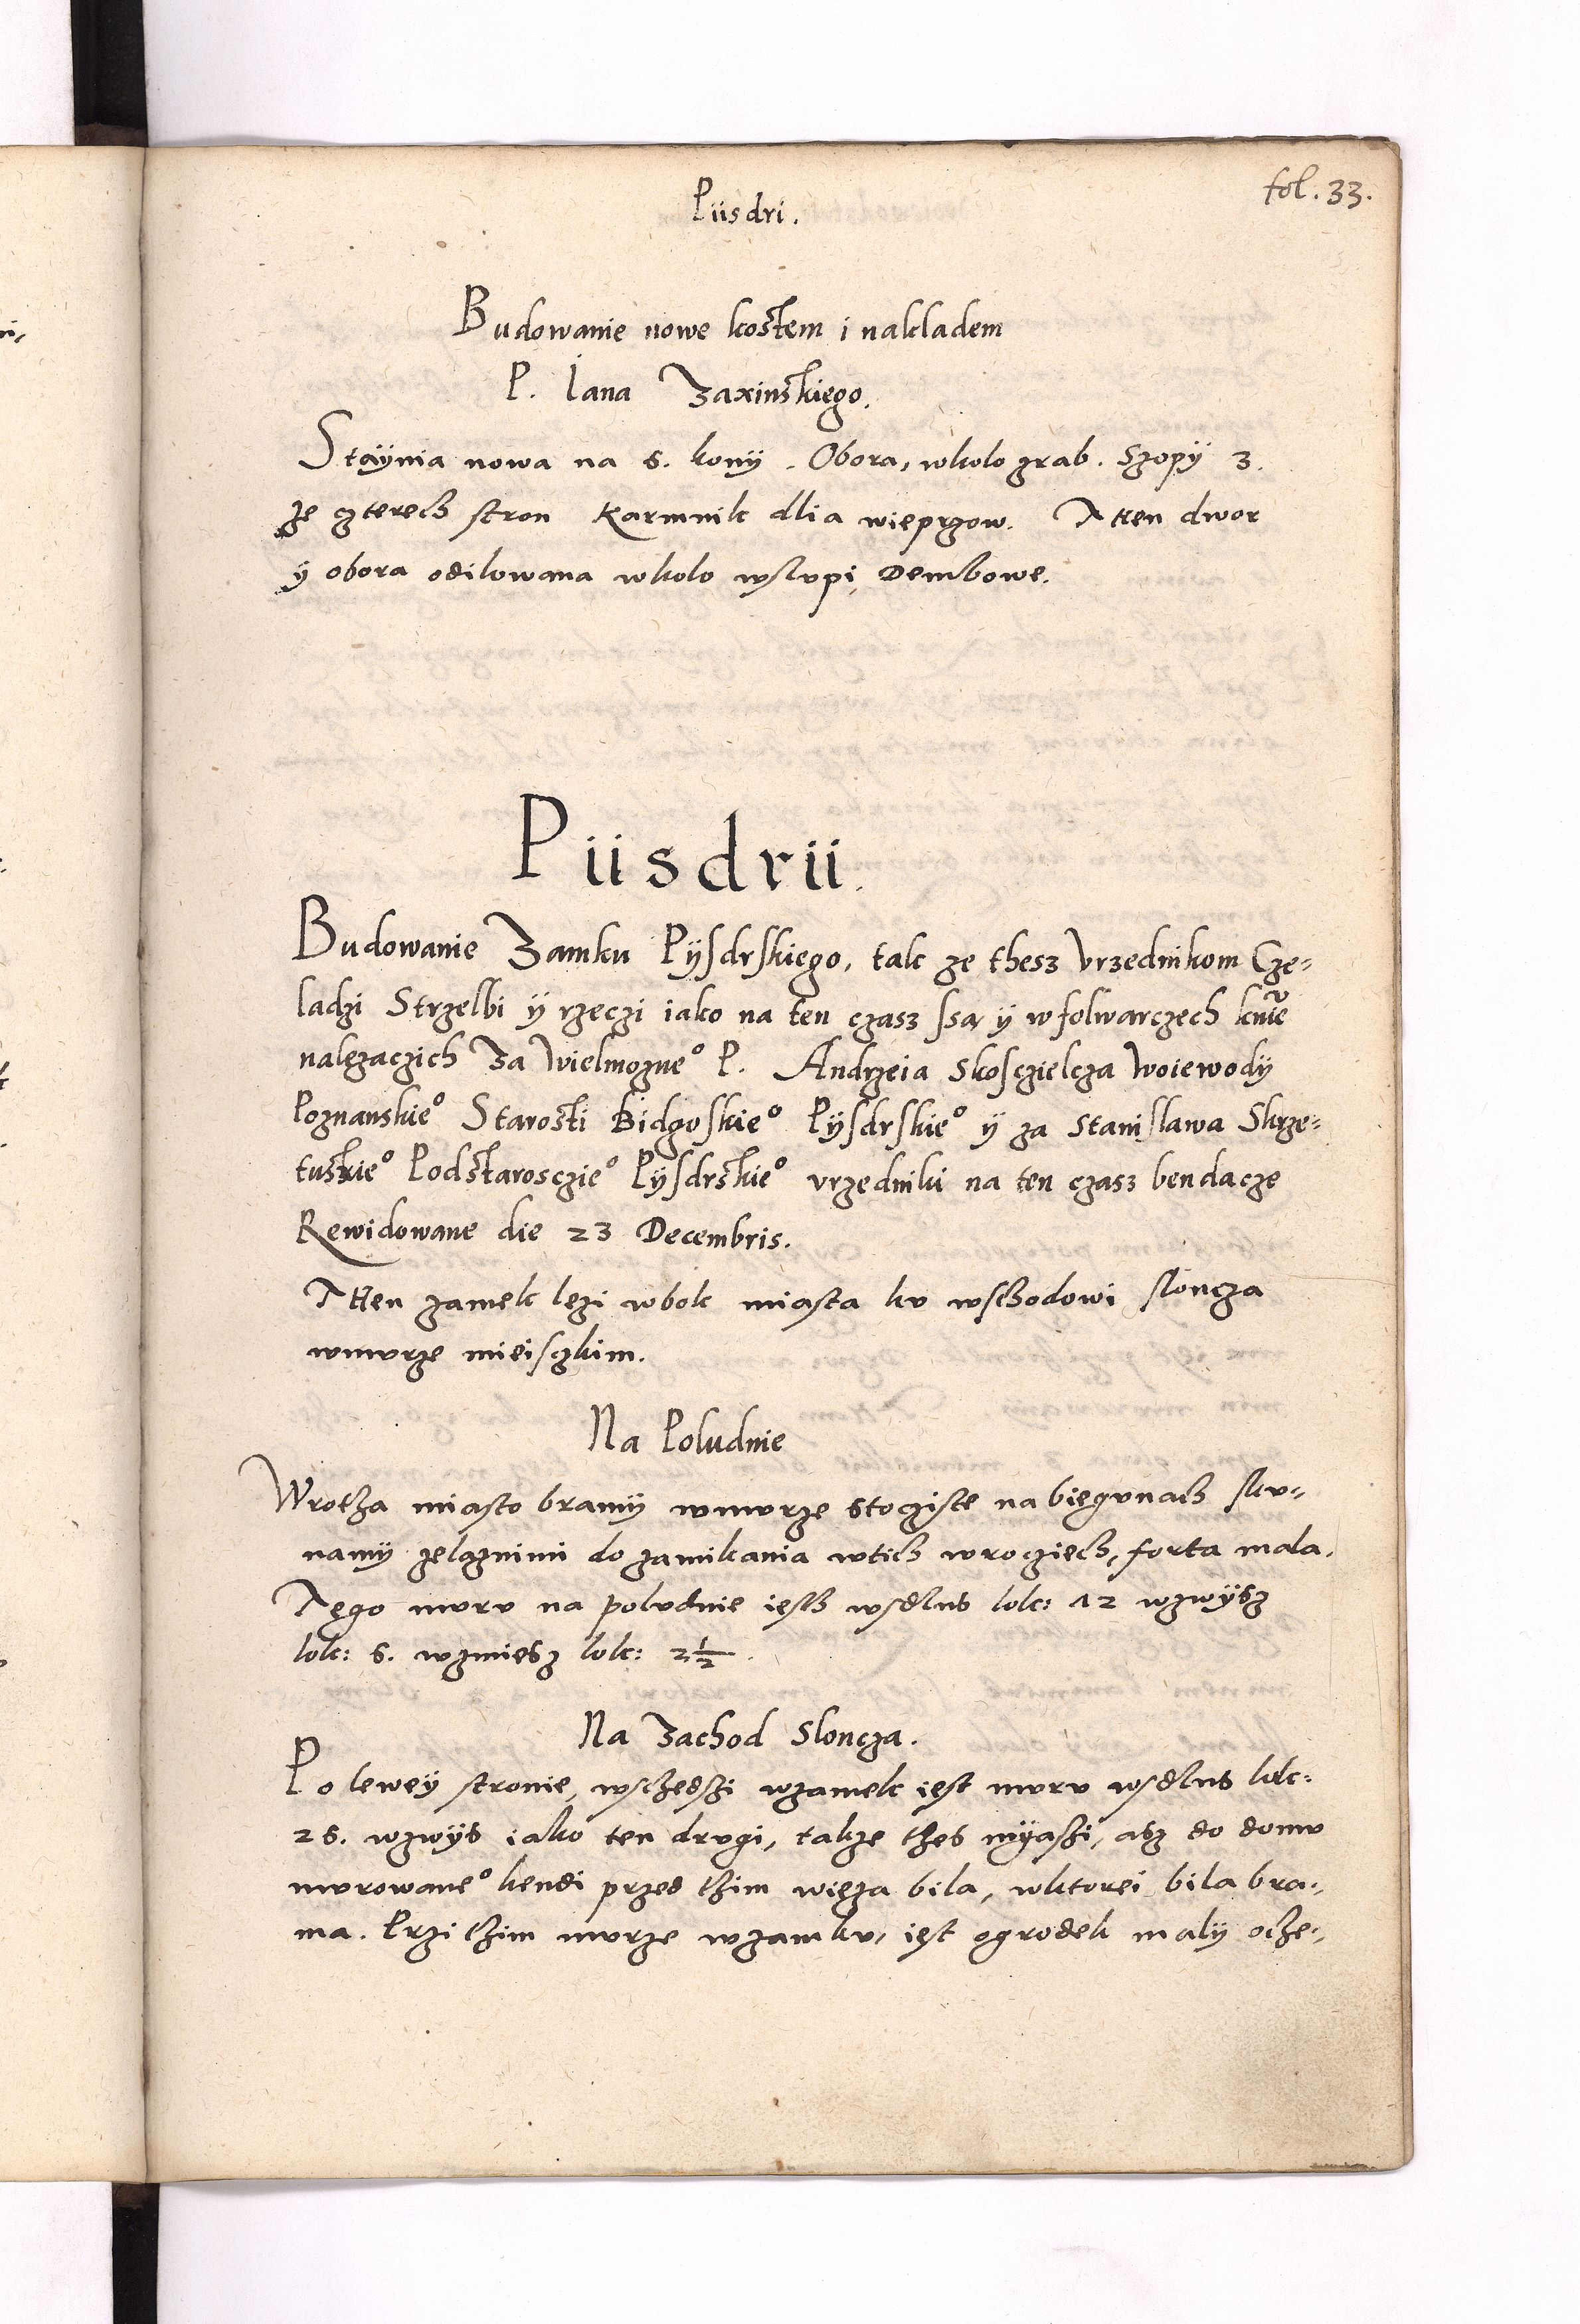 fol. 33.
Piisdri.
Budowanie nowe kostem i nakladem
P. Jana Zaxinskiego.
Staÿnia nowa na 6. konÿ. Obora, wkolo zrab. Szopÿ 3.
ze czterech stron Karmnik dlia wieprzow. Then dwor
ÿ obora odilowana wkolo wslvpi, Dembowe.
Piisdrii.
Budowanie Zamku Pÿsdrskiego, tak ze thesz Vrzednikom Cze-
ladzi Strzelbi ÿ rzeczi iako na ten czasz ssa ÿ wfolwarczech knie
nalezaczich Za Wielmozne° P. Andrzeia Skosczielcza Woiewody
Poznanskie° Starosti Bidgoskie° Pÿsdrskie° ÿ za Stanislawa Skrze-
tuskie° Podstarosczie° Pÿsdrskie° vrzedniki na ten czasz bendacze
Rewidowane die 23 Decembris.
Then zamek lezi wbok miasta kv wschodowi sloncza
wmvrze mieisczkim.
Na Poludnie
Wrotha miasto bramÿ wmvrze stoziste na biegvnach skv-
namÿ zelaznimi do zamikania wtich wrocziech, forta mala.
Tego mvrv na polvdnie iesth wsdlus lok: 12 wzwÿsz
lok: 6. wzmiesz lok: 2 1/2.
Na Zachod Sloncza.
Po leweÿ stronie, wschedszi wzamek iest mvrv wsdlus lok:
26. wzwÿs iako ten drvgi, takze thes mÿaszi, asz do domv
mvrowane° kendi przed thim wieza bila, wktorei bila bra-
ma. Przi thim mvrze wzamkv, iest ogrodek maly othe-